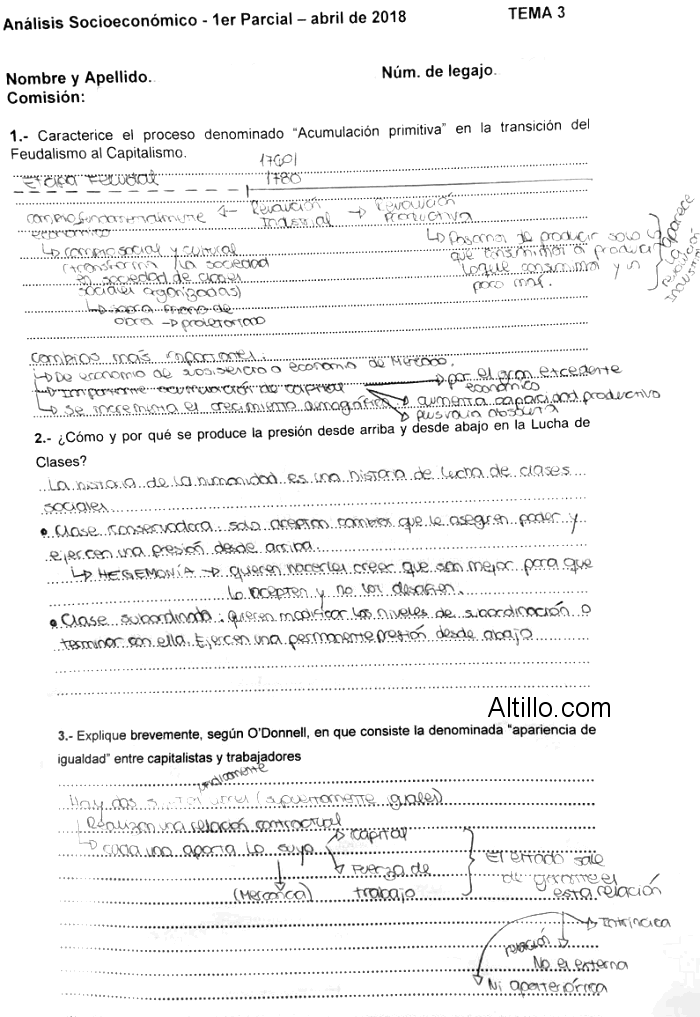 Análisis Socioeconómico - 1er Parcial – abril de 2018
TEMA 3
Nombre y Apellido.
Núm. de legajo.
Comisión:
1.- Caracterice el proceso denominado “Acumulación primitiva” en la transición del
Feudalismo al Capitalismo.
1760/
1780
Etapa Feudal
cambio fundamentalmente ← Revolución → Revolución
económico Industrial Productiva
↳ cambio social y cultural
(transforma la sociedad
en sociedad de clases
sociales agonizadas)
obra → proletariado
↳ Pasamos de producir solo lo
que consumimos a producir
lo que consumimos y un
poco más.
aparece
la
revolución
industrial
cambios más importantes:
↳ De economía de subsistencia a economía de Mercado.
↳ Importante acumulación de capital → por el gran excedente
económico
↳ Se incrementa el crecimiento demográfico
→ aumenta capacidad productivo
→ plusvalía absoluta
2.- ¿Cómo y por qué se produce la presión desde arriba y desde abajo en la Lucha de
Clases?
La historia de la humanidad es una historia de lucha de clases
sociales
• Clase conservadora: solo aceptan cambios que le asegren poder y
ejercen una presión desde arriba.
↳ HEGEMONÍA → quieren hacerles creer que son mejor para que
lo acepten y no los desafien.
• Clase subordinada: quieren modificar los niveles de subordinación o
terminar con ella. Ejercen una permanente presión desde abajo
Altillo.com
3.- Explique brevemente, según O'Donnell, en que consiste la denominada “apariencia de
igualdad” entre capitalistas y trabajadores
Hay dos (supuestamente iguales)
Realizan una relación contractual
↳ cada una aporta lo suyo
→ Capital
→ Fuerza de
trabajo
(Mercancía)
El estado sale
de garante
esta relación
relación
→ Intrincica
No es externa
Ni aposteriórica